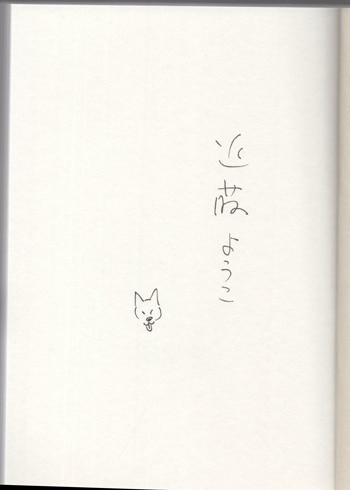 近藤ようこ